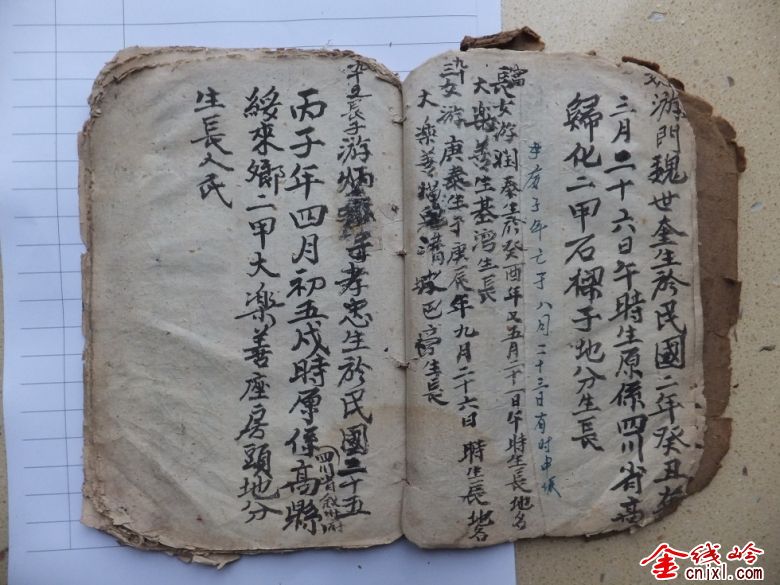 游門魏世奎生於民國二年癸丑
三月二十六日午時生原係四川省高
歸化二甲石稞子地分生長
八月二十三日
長女游潤泰生於癸酉年又五月二十一日午時生長地名
大樂善生基湾生長
三女游庚泰生于庚辰年九月二十六日 時生長地名
大樂善
生長
長子游炳
字孝忠生於民國二十五
丙子年四月初五戌時原係高縣
四川省叙州府
綏來鄉二甲大樂善座房頭地分
生長人氏
金线岭
cnixl.com